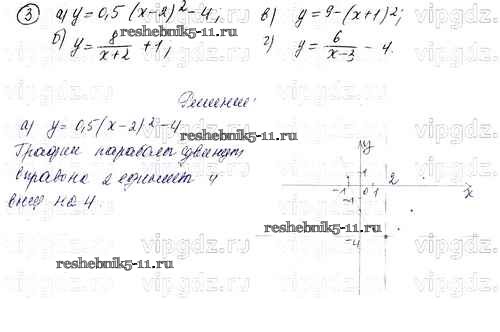 ③ а) y = 0,5 (x-2)² - 4, в) y = 9 - (x+1)²;
б) y = 8/(x+2) + 1, г) y = 6/(x-3) - 4.
reshebnik5-11.ru
reshebnik5-11.ru
Решение:
reshebnik5-11.ru
а) y = 0,5 (x-2)² - 4
График параболы сдвинут
вправо на 2 единиц и
вниз на 4.
y
1
2
-1 0 1 x
-1
-4
reshebnik5-11.ru
reshebnik5-11.ru
vipgdz.com